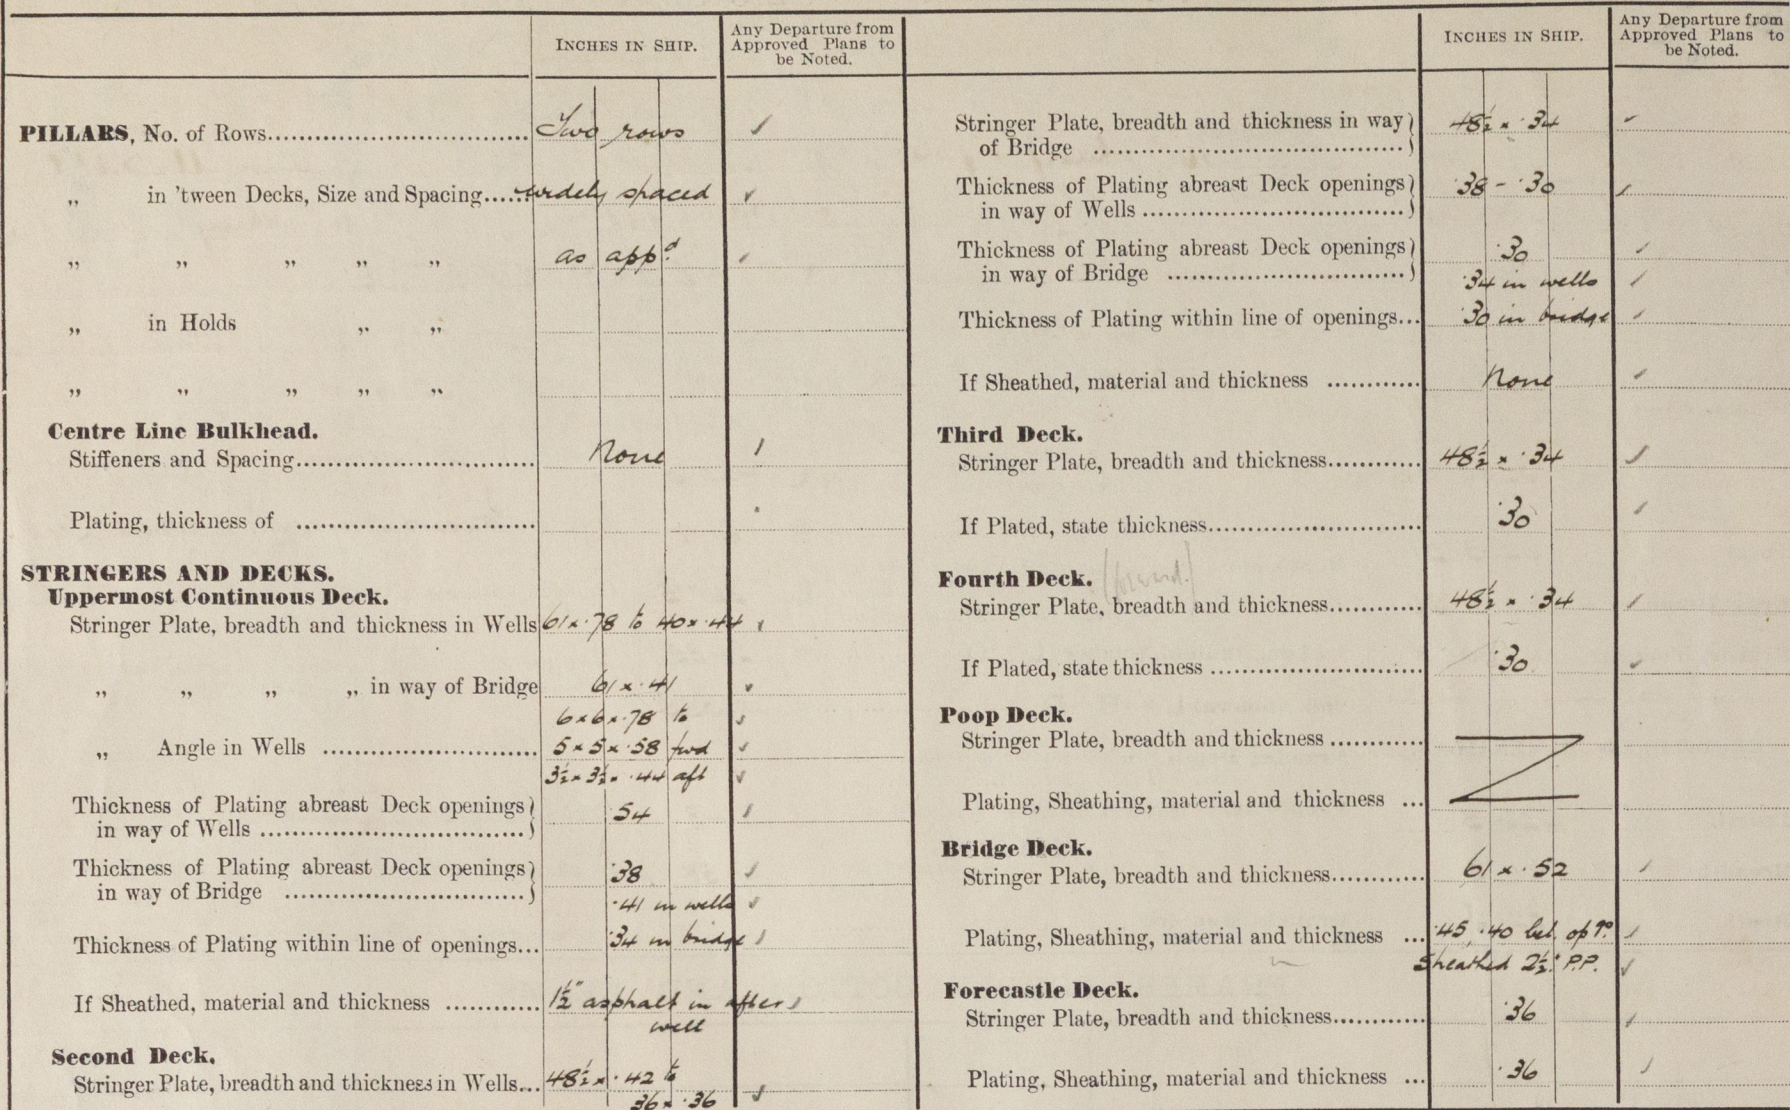 INCHES IN SHIP.
Any Departure from
Approved Plans to
be Noted.
PILLARS, No. of Rows.............................. Two rows ✓
„ in 'tween Decks, Size and Spacing...... widely spaced ✓
„ „ „ „ „ as app.d ✓
„ in Holds „ „
„ „ „ „ „
Centre Line Bulkhead.
Stiffeners and Spacing.............................. None ✓
Plating, thickness of ..............................
STRINGERS AND DECKS.
Uppermost Continuous Deck.
Stringer Plate, breadth and thickness in Wells 61 x .78 to 40 x .44 ✓
„ „ „ „ in way of Bridge 61 x .41 ✓
6 x 6 x .78 to ✓
„ Angle in Wells .............................. 5 x 5 x .58 fwd ✓
3½ x 3½ x .44 aft ✓
Thickness of Plating abreast Deck openings
in way of Wells .............................. .54 ✓
Thickness of Plating abreast Deck openings
in way of Bridge .............................. .38 ✓
.41 in wells ✓
Thickness of Plating within line of openings... .34 in bridge ✓
If Sheathed, material and thickness ............ 1½" asphalt in after ✓
well
Second Deck.
Stringer Plate, breadth and thickness in Wells... 48½ x .42 to
36 x .36 ✓
INCHES IN SHIP.
Any Departure from
Approved Plans to
be Noted.
Stringer Plate, breadth and thickness in way 48½ x .34 ✓
of Bridge ..............................
Thickness of Plating abreast Deck openings .38 - .30 ✓
in way of Wells ..............................
Thickness of Plating abreast Deck openings .30 ✓
in way of Bridge ..............................
.34 in wells ✓
Thickness of Plating within line of openings... .30 in bridge ✓
If Sheathed, material and thickness ............ None ✓
Third Deck.
Stringer Plate, breadth and thickness............ 48½ x .34 ✓
If Plated, state thickness.............................. .30 ✓
Fourth Deck.
Stringer Plate, breadth and thickness............ 48½ x .34 ✓
If Plated, state thickness .............................. .30 ✓
Poop Deck.
Stringer Plate, breadth and thickness ............
Plating, Sheathing, material and thickness ...
Bridge Deck.
Stringer Plate, breadth and thickness............ 61 x .52 ✓
Plating, Sheathing, material and thickness ... .45, .40 bet. opgs. ✓
Sheathed 2½" P.P. ✓
Forecastle Deck.
Stringer Plate, breadth and thickness............ .36 ✓
Plating, Sheathing, material and thickness ... .36 ✓